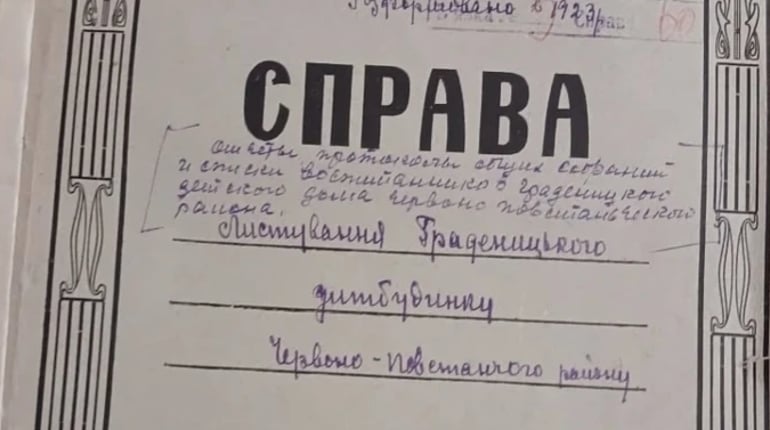 Розформовано в 1923р
60
СПРАВА
Отчеты, протоколы общих собраний
и списки воспитанников Граденицкого
детского дома Червоно Повстанческого
района.
Листування Граденицького
дитбудинку
Червоно-Повстанчого району